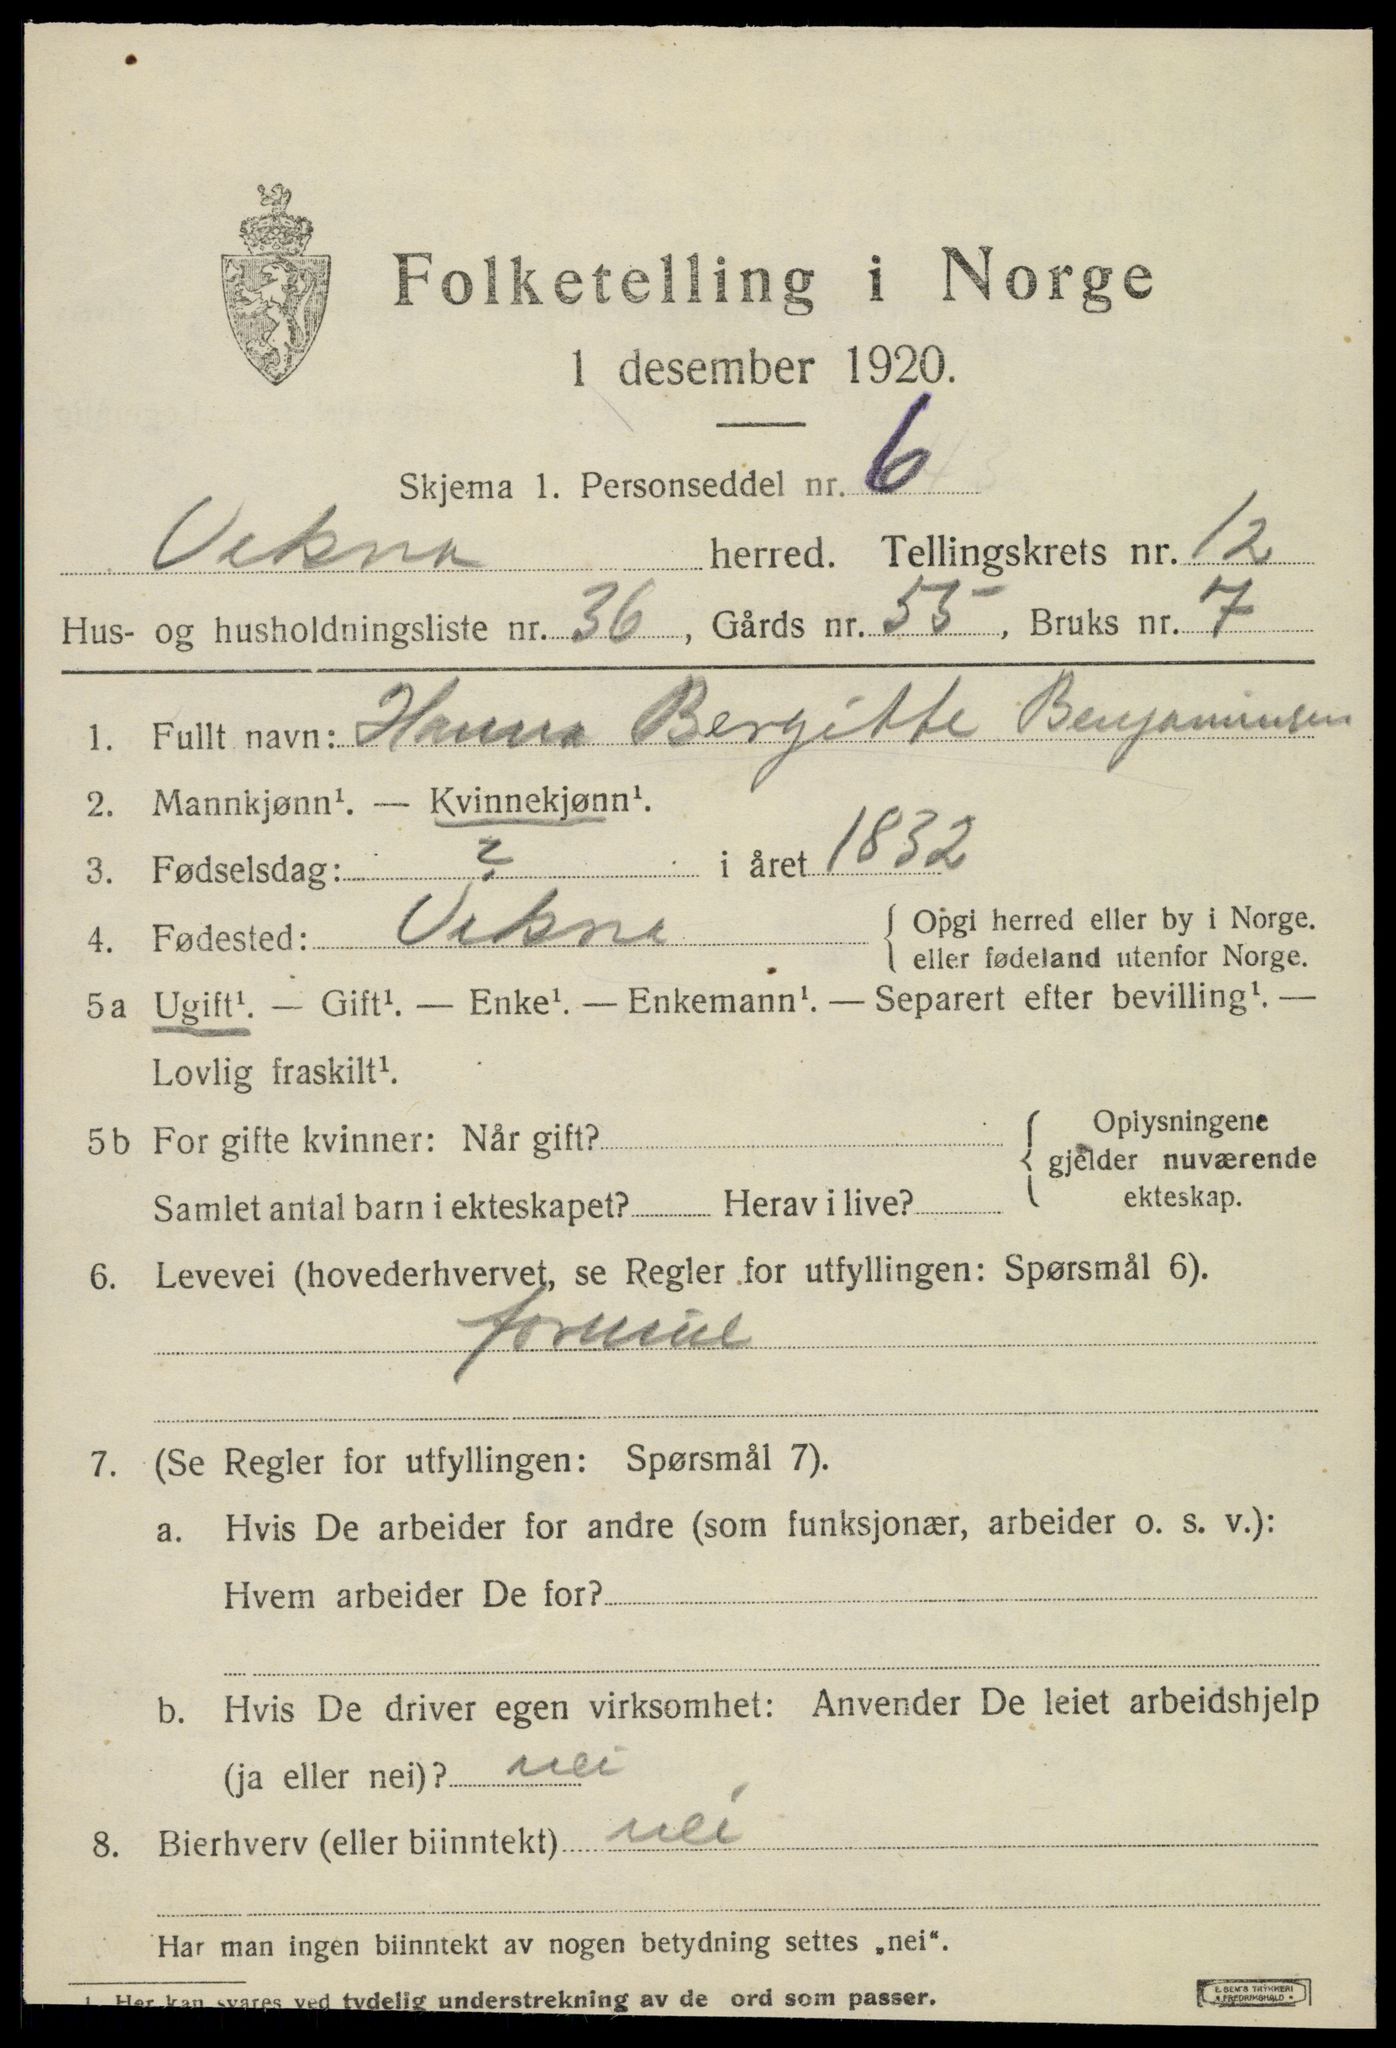 Folketelling i Norge
1 desember 1920.
Skjema 1. Personseddel nr. 6
Vikna herred. Tellingskrets nr. 12
Hus- og husholdningsliste nr. 36, Gårds nr. 55, Bruks nr. 7
1. Fullt navn: Hanna Bergitte Benjaminsen
2. Mannkjønn¹. — Kvinnekjønn¹.
3. Fødselsdag: ? i året 1832
4. Fødested: Vikna { Opgi herred eller by i Norge.
eller fødeland utenfor Norge.
5a Ugift¹. — Gift¹. — Enke¹. — Enkemann¹. — Separert efter bevilling¹. —
Lovlig fraskilt¹.
5b For gifte kvinner: Når gift?
Samlet antal barn i ekteskapet? Herav i live?
{ Oplysningene
gjelder nuværende
ekteskap.
6. Levevei (hovederhvervet, se Regler for utfyllingen: Spørsmål 6).
7. (Se Regler for utfyllingen: Spørsmål 7).
a. Hvis De arbeider for andre (som funksjonær, arbeider o. s. v.):
Hvem arbeider De for?
b. Hvis De driver egen virksomhet: Anvender De leiet arbeidshjelp
(ja eller nei)? nei
8. Bierhverv (eller biinntekt) nei
Har man ingen biinntekt av nogen betydning settes „nei“.
1. Her kan svares ved tydelig understrekning av de ord som passer.
E. SEM'S TRYKKERI
FREDRIKSHALD